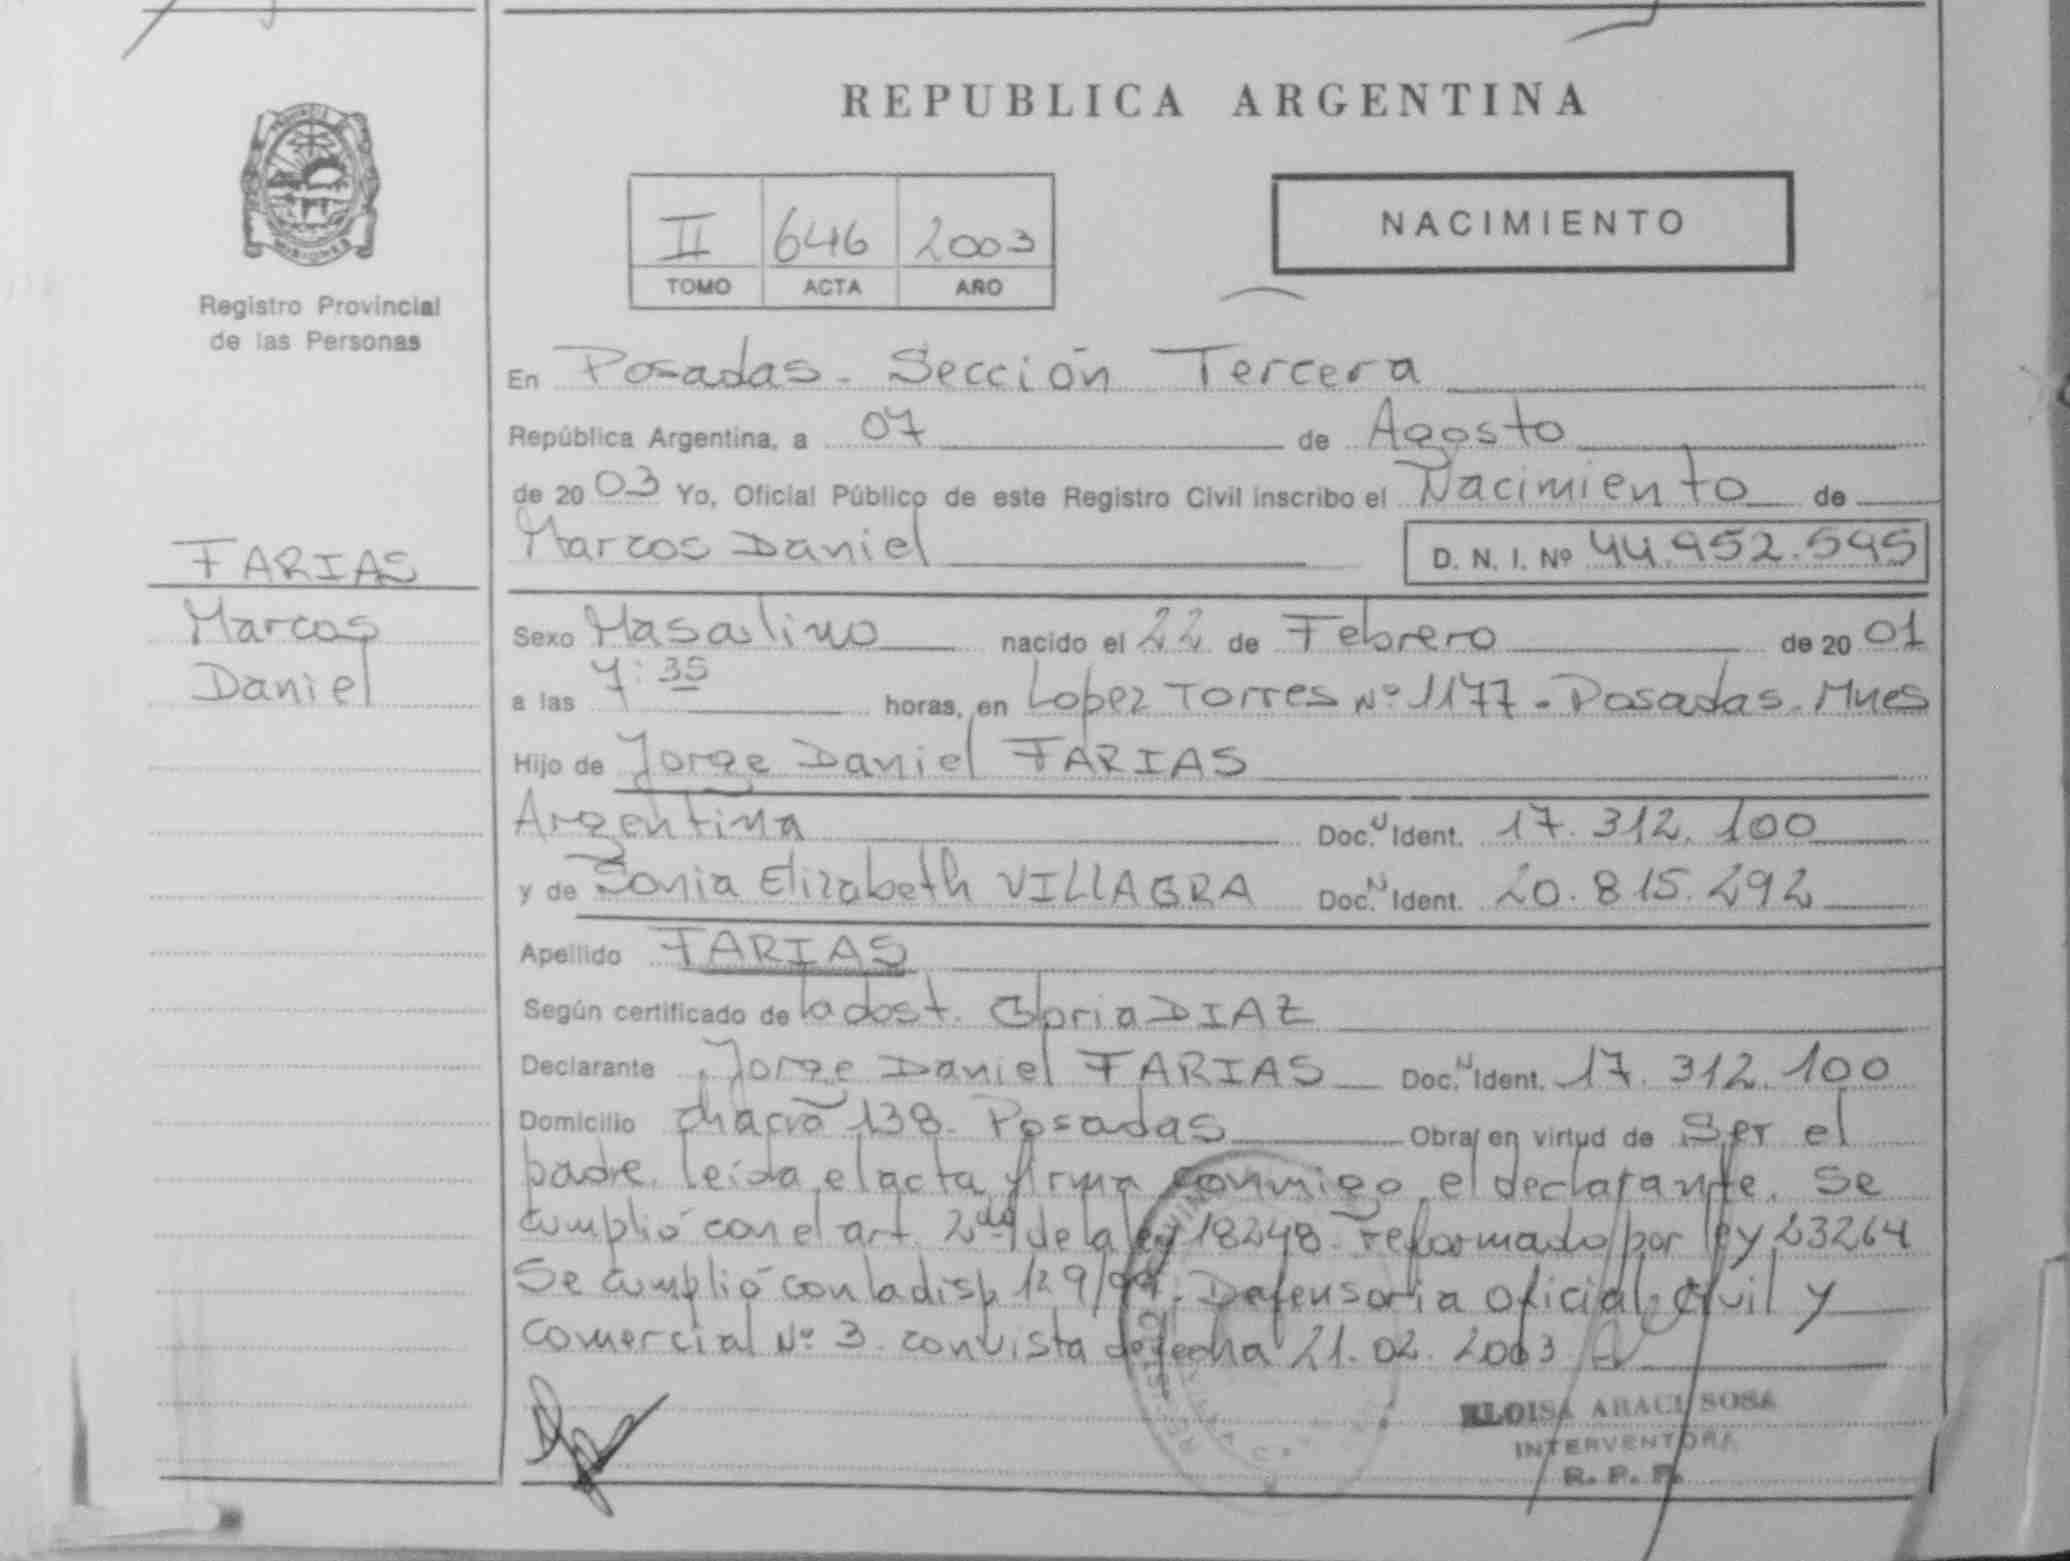 REPUBLICA ARGENTINA
II 646 2003
TOMO ACTA AÑO
NACIMIENTO
Registro Provincial
de las Personas
FARIAS
Marcos
Daniel
En Posadas - Sección Tercera
República Argentina, a 07 de Agosto
de 20 03 Yo, Oficial Público de este Registro Civil inscribo el Nacimiento de
Marcos Daniel D. N. I. Nº 44.952.595
Sexo Masculino nacido el 22 de Febrero de 20 01
a las 7:35 horas, en Lopez Torres Nº 1177 - Posadas - Mnes
Hijo de Jorge Daniel FARIAS
Argentina Doc. N Ident. 17.312.100
y de Sonia Elizabeth VILLAGRA Doc. N Ident. 20.815.292
Apellido FARIAS
Según certificado de la obst. Gloria DIAZ
Declarante Jorge Daniel FARIAS Doc. N Ident. 17.312.100
Domicilio chacra 138 - Posadas Obra en virtud de Ser el
padre. leída el acta, firma conmigo el declarante. Se
cumplió con el art. 2do de la ley 18248 - reformado por ley 23264
Se cumplió con la disp. 129/ - Defensoria oficial Civil y
Comercial Nº 3 - con vista de fecha 21.02.2003
ELOISA ARACI SOSA
INTERVENTORA
R. P. P.